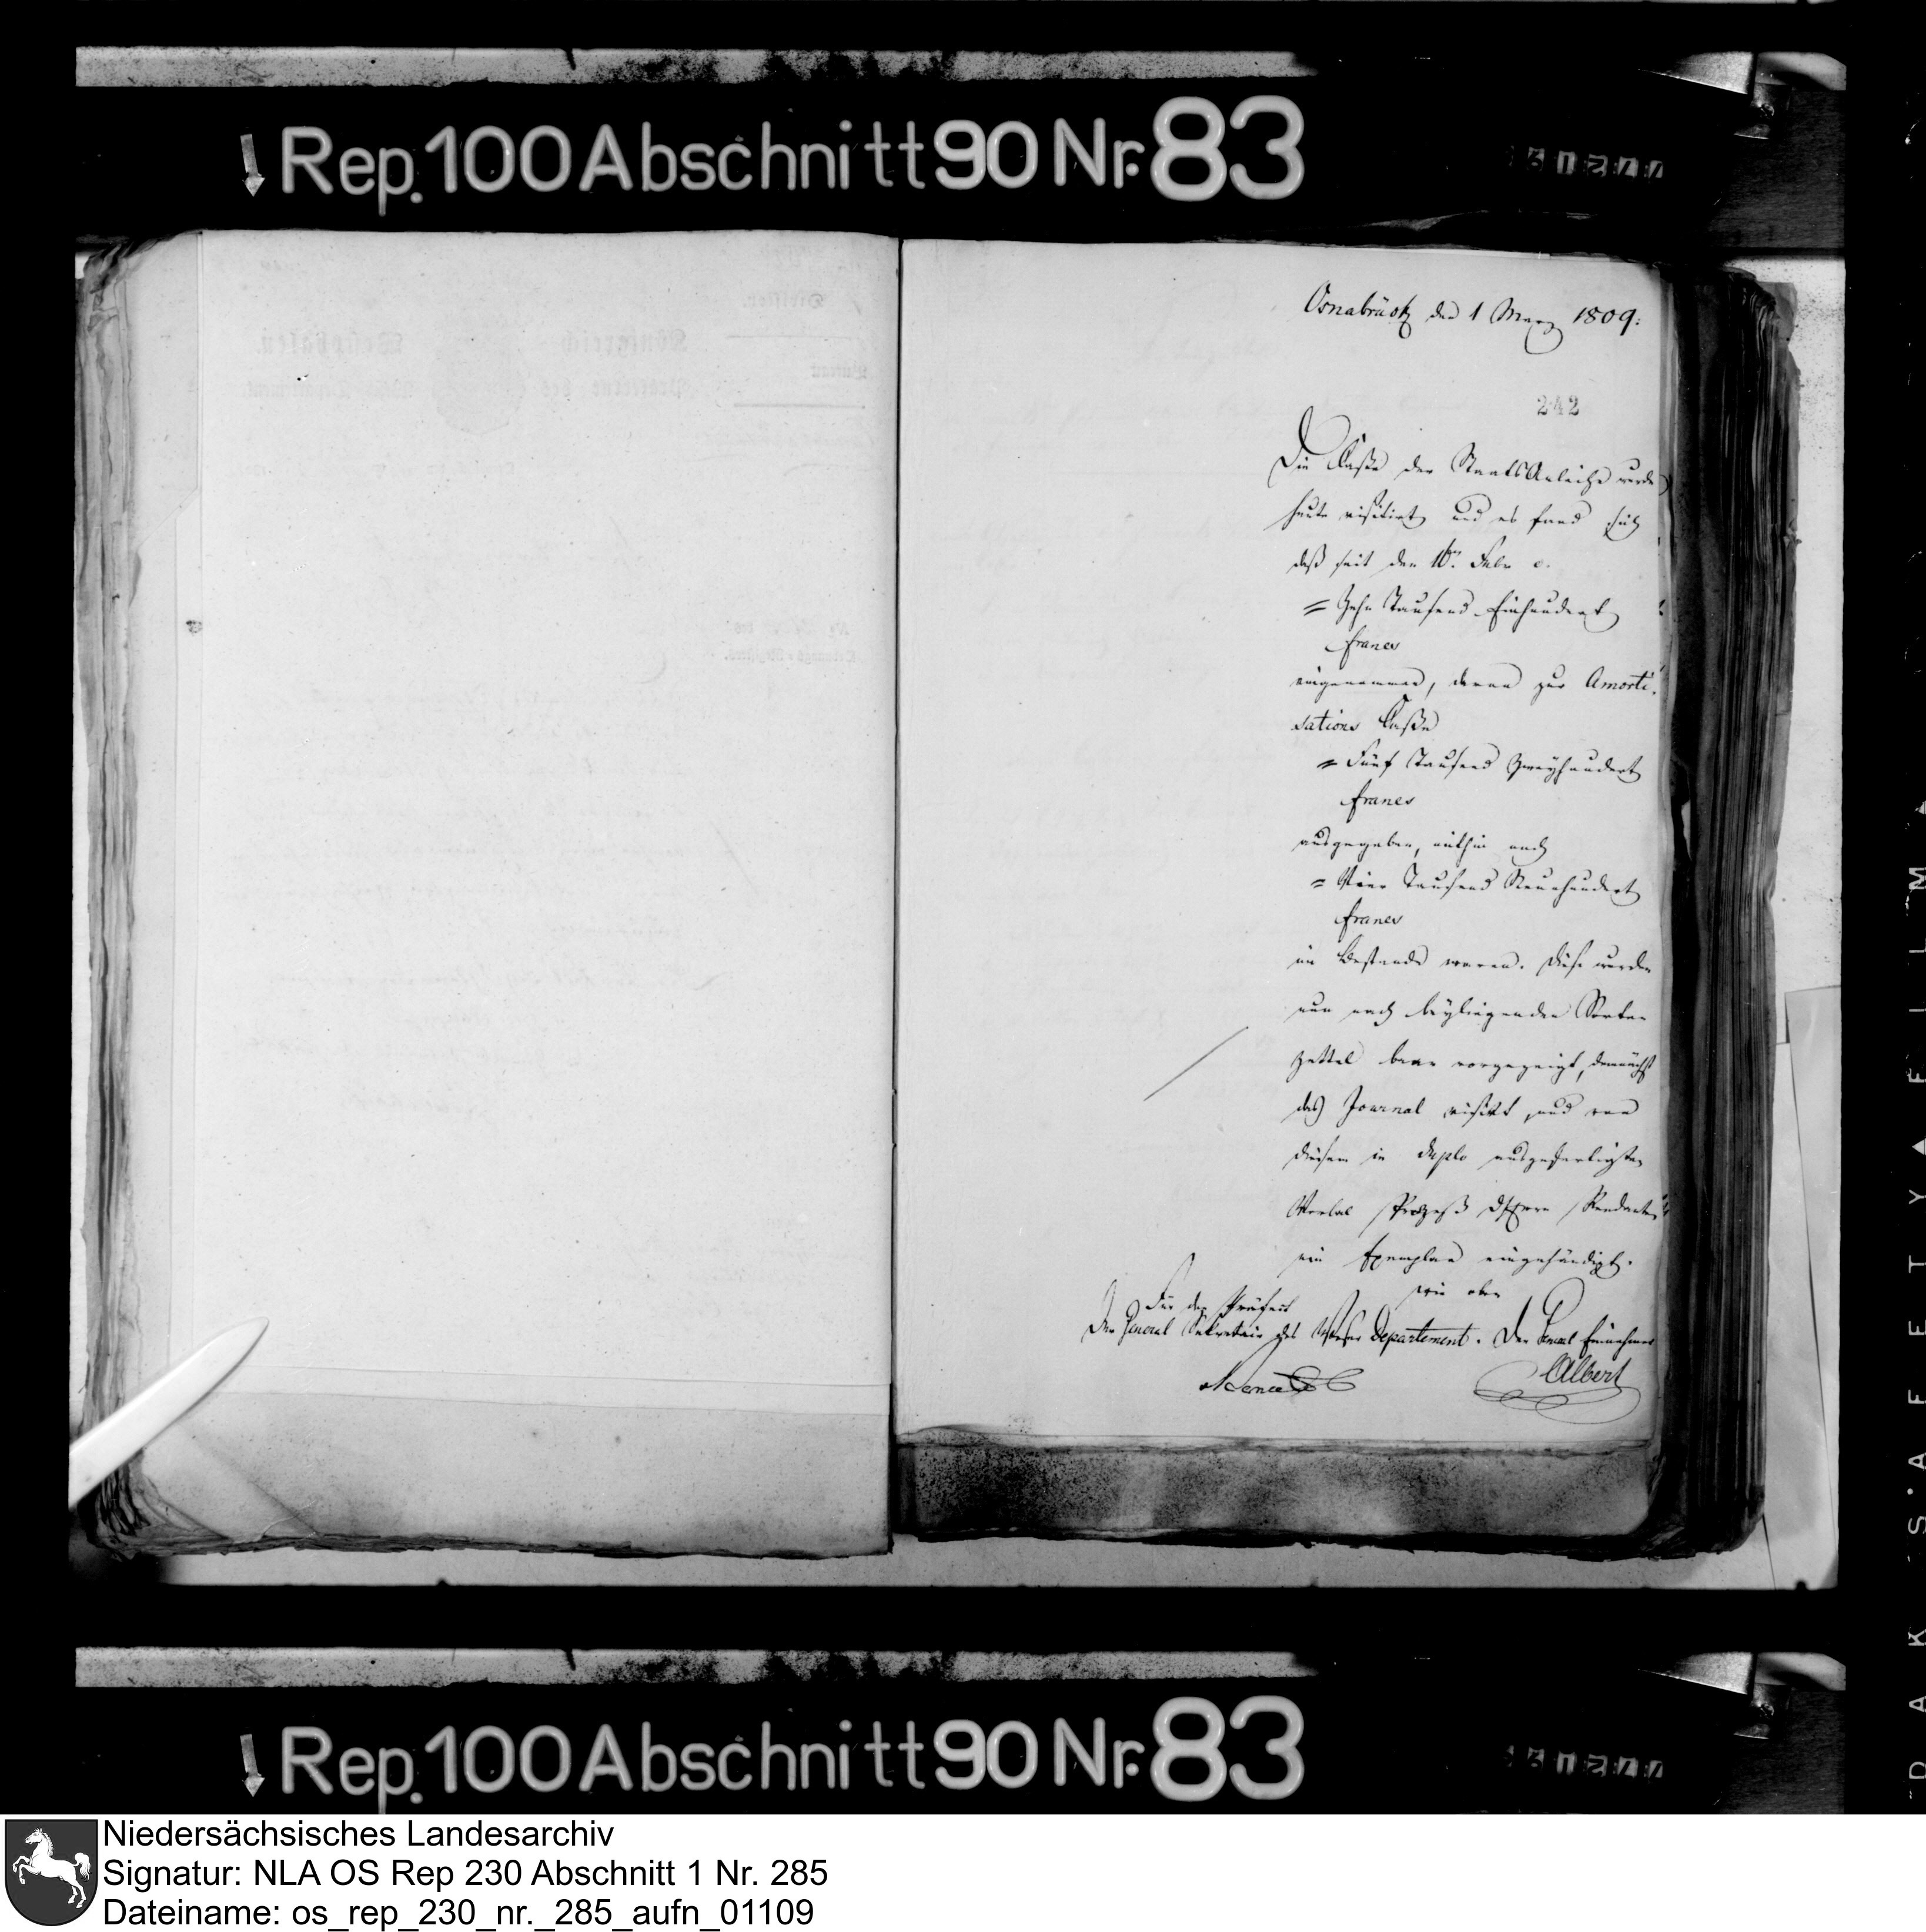 Rep. 100 Abschnitt 90 Nr. 83
Osnabrück den 1 Merz 1809.
242
Die Casse der Staats Anleihe wurde
heute visitirt und es fand sich
daß seit den 16ten Febr c.
= Zehn Tausend Einhundert
francs
eingenommen, davon zur Amorti-
sations Casse
= Fünf Tausend Zweyhundert
francs
ausgegeben, mithin noch
= Vier Tausend Neunhundert
francs
im Bestande waren. Diese wurden
nun nach beyliegenden Sorten
zettel baar vorgezeigt, demnächst
das Journal visirt, und von
diesem in duplo ausgefertigten
Verbal Prozeß Herrn Rendanten
ein Exemplar eingehändigt.
wie oben
Für den Präfect
Der General Sekretair des Weser Departement. Der General Einnehmer
Albert
Rep. 100 Abschnitt 90 Nr. 83
Niedersächsisches Landesarchiv
Signatur: NLA OS Rep 230 Abschnitt 1 Nr. 285
Dateiname: os_rep_230_nr._285_aufn_01109